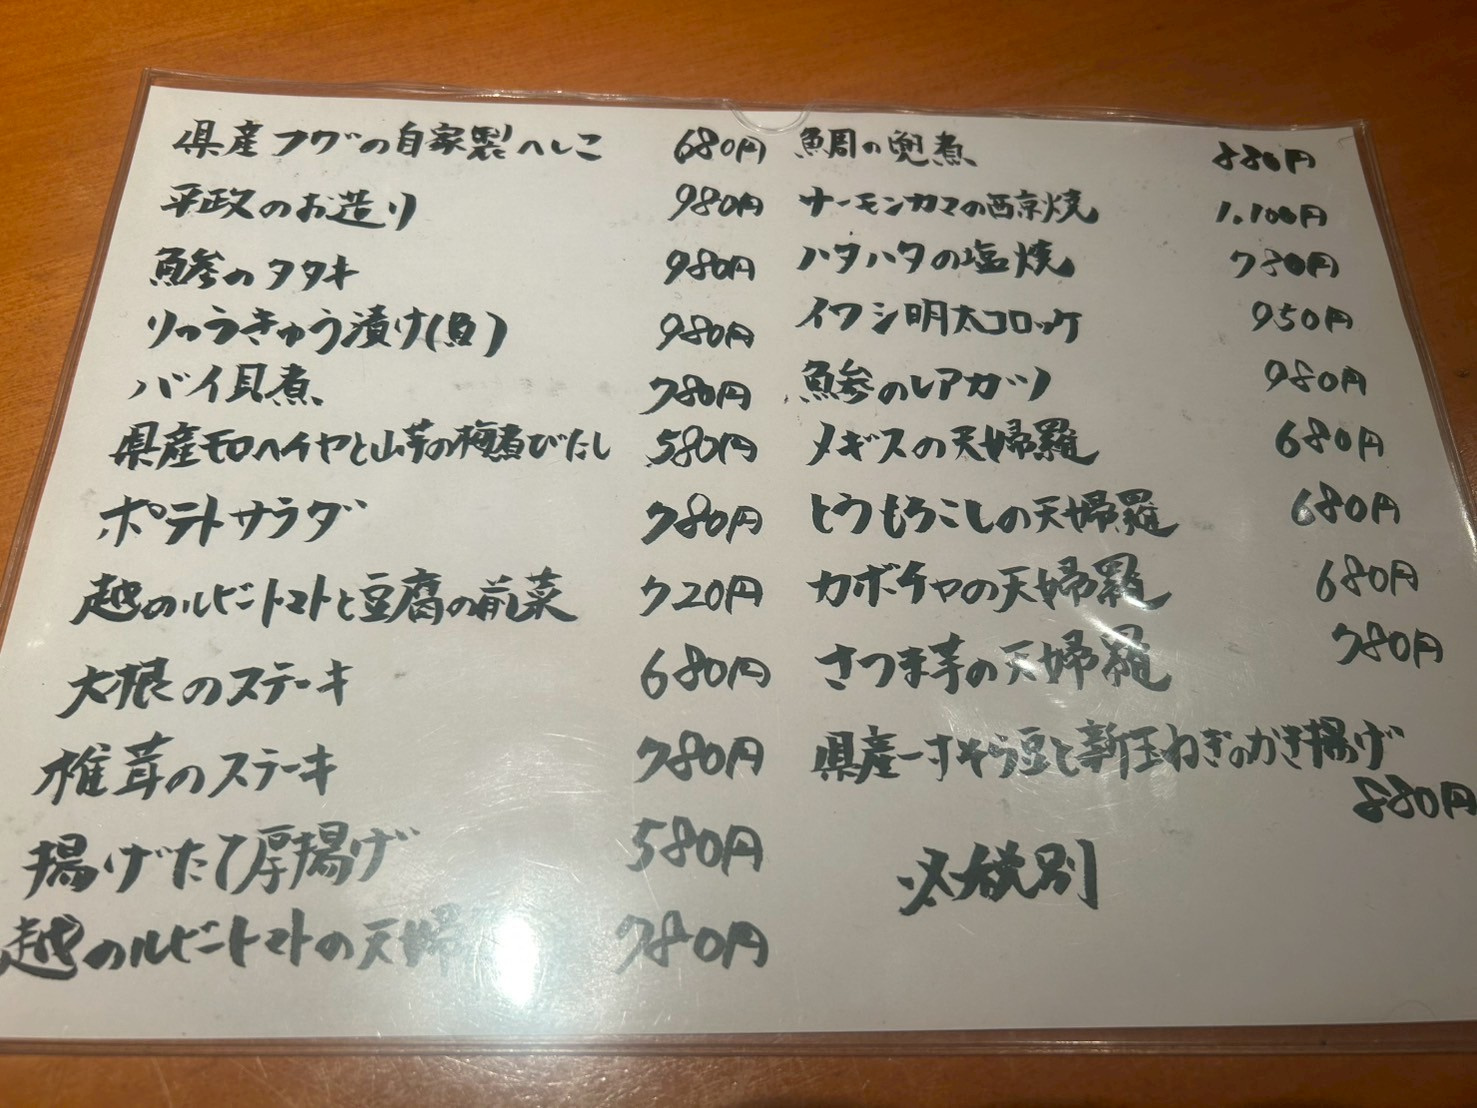 県産フグの自家製へしこ 680円
平政のお造り 980円
鯵のタタキ 980円
りゅうきゅう漬け(魚) 980円
バイ貝煮 780円
県産モロヘイヤと山芋の梅煮びたし 580円
ポテトサラダ 780円
越のルビートマトと豆腐の前菜 720円
大根のステーキ 680円
椎茸のステーキ 780円
揚げたて厚揚げ 580円
越のルビートマトの天婦 780円
鯛の兜煮 880円
サーモンカマの西京焼 1,100円
ハタハタの塩焼 780円
イワシ明太コロッケ 950円
鯵のレアカツ 980円
メギスの天婦羅 680円
とうもろこしの天婦羅 680円
カボチャの天婦羅 680円
さつま芋の天婦羅 780円
県産一寸そら豆と新玉ねぎのかき揚げ
880円
税別